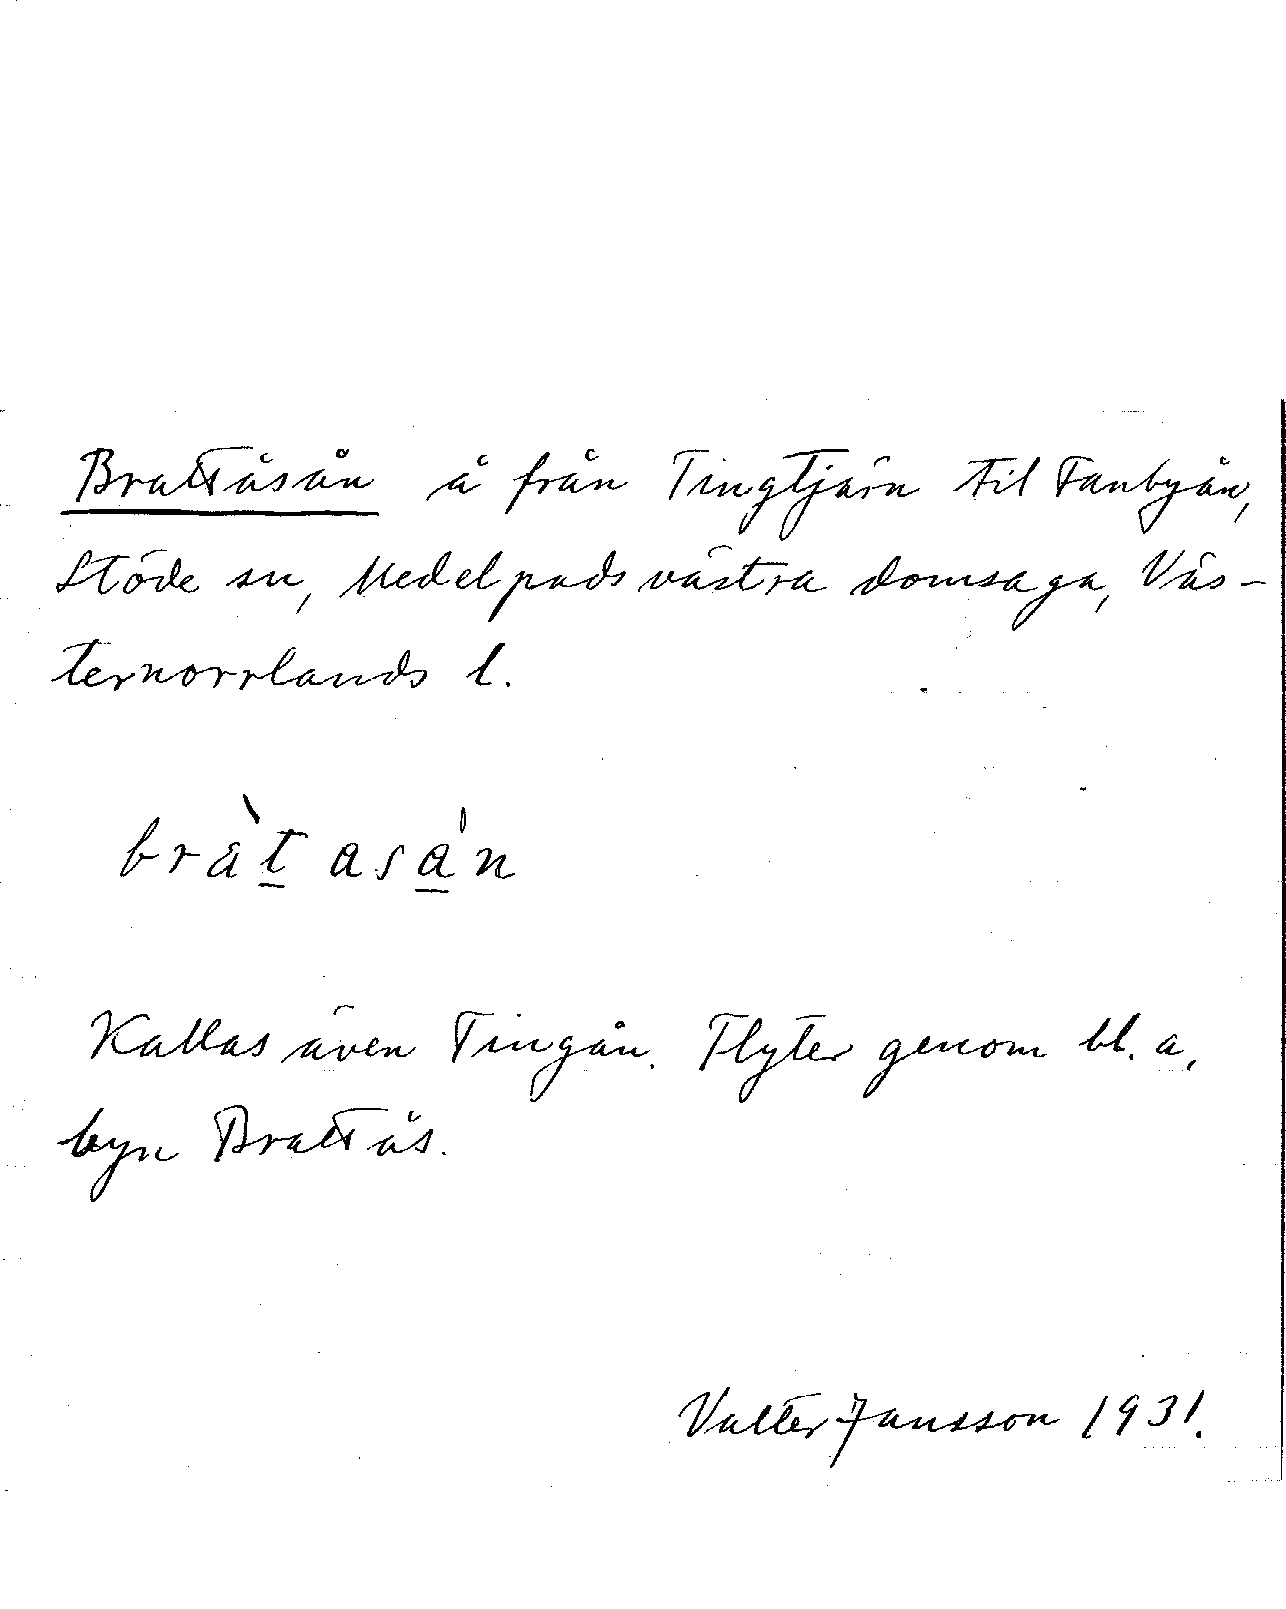 Brattåsån å från Tingtjärn til Fanbyån,
Stöde sn, Medelpads västra domsaga, Väs-
ternorrlands l.
bràt asa̍n
Kallas även Tingån. Flyter genom bl. a.
byn Brattås.
Valter Jansson 1931.